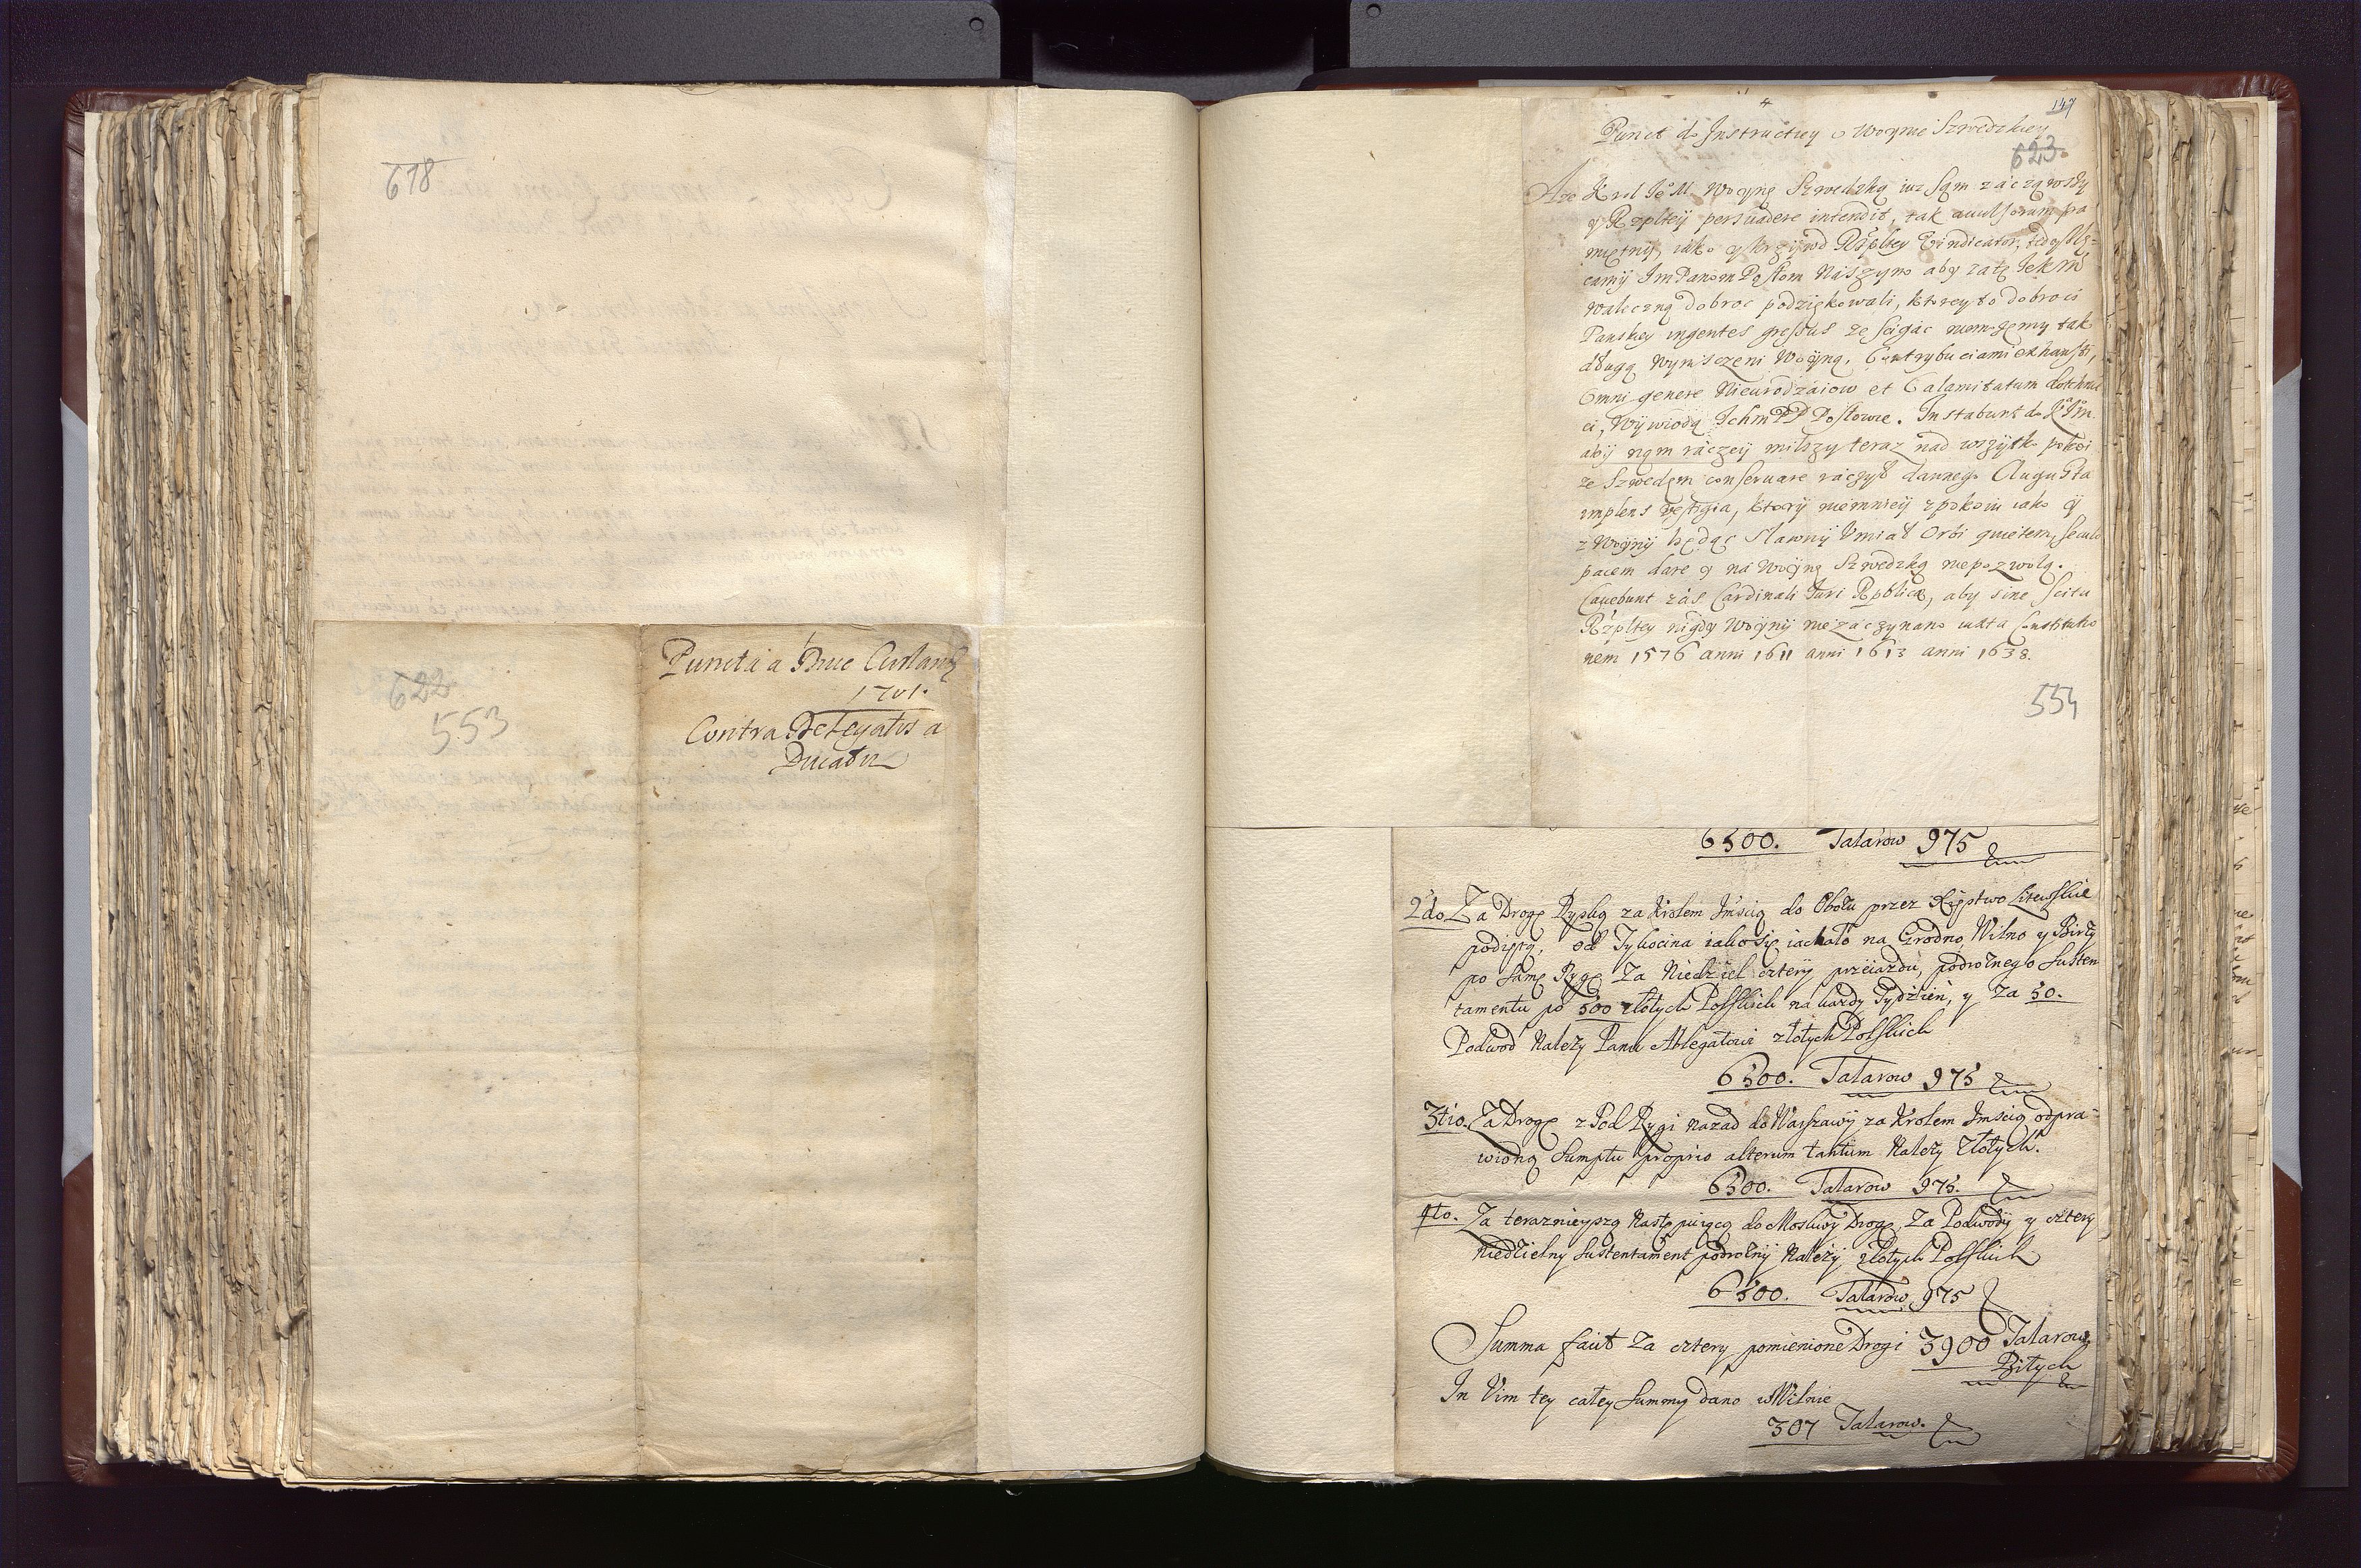 618
622
553
Puncta a Duce Curland
1701.
Contra Delegatos a
Ducatu
147
Punct do Instructiey o Woynie Szwedzkiey
623
Aze Krol Je M. Woynę Szwedzką iuż sąm záczą wszy
y Rzpltey persuadere intendit, tak avulsorum pa
miętny, iáko y krzywd Rzpltey Vindicator, tedy zle=
camy Im Panom Posłom Nászym aby zatę JeKM
waleczną dobroc podziękowali, ktorey to dobroci
Panskiey ingentes gressus ze scigác niemożemy tak
długą wyniszczeni Woyną, Contrybuciami exhausti,
Omni genere Nieurodzáiow et Calamitatum
ci, Wywiodą Ichm PP Posłowie. Instabunt do K Im
aby nąm ráczey milszy teraz nad wszytko pokoi
ze Szwedem conservare ráczył dawnego Augusta
implens vestigia, ktory niemniey z pokoiu iako y
z Woyny będąc sławny Vmiał Orbi quietem, seculo
pacem dare y ná Woynę Szwedzką niepozwolą.
Cavebunt zás Cardinali Iuri Rpblicæ, aby sine scitu
Rzpltey nigdy Woyny niezáczynano iuxta Constitutio
nem 1576 anni 1611 anni 1613 anni 1638.
554
6500. Talarow 975
2do Za Drogę Ryską za Krolem Imścią do Obozu przez Xięstwo Litewskie
podiętą, od Tykocina iako się iachało na Grodno, Wilno y Birże
po samę Rygę Za Niedziel cztery przeiazdu, podrożnego susten
tamentu po 500 złotych Polskich na każdy Tydzień, y za 50.
Podwod Należy Panu Ablegatowi złotych Polskich
6500. Talarow 975
3tio. Za Drogę z Pod Rygi nazad do Warszawy za Krolem Imścią odpra=
wioną sumptu proprio alterum tantum Należy Złotych.
6500. Talarow 975.
4to. Za teraznieyszą następuiącą do Moskwy Drogę, Za Podwody y cztery
niedzielny sustentament podrożny Należy złotych Polskich
6500. Talarow 975
Summa facit Za cztery pomienione Drogi 3900 Talarow
Bitych
In Vim tey całey summy dano w Wilnie
307 Talarow.